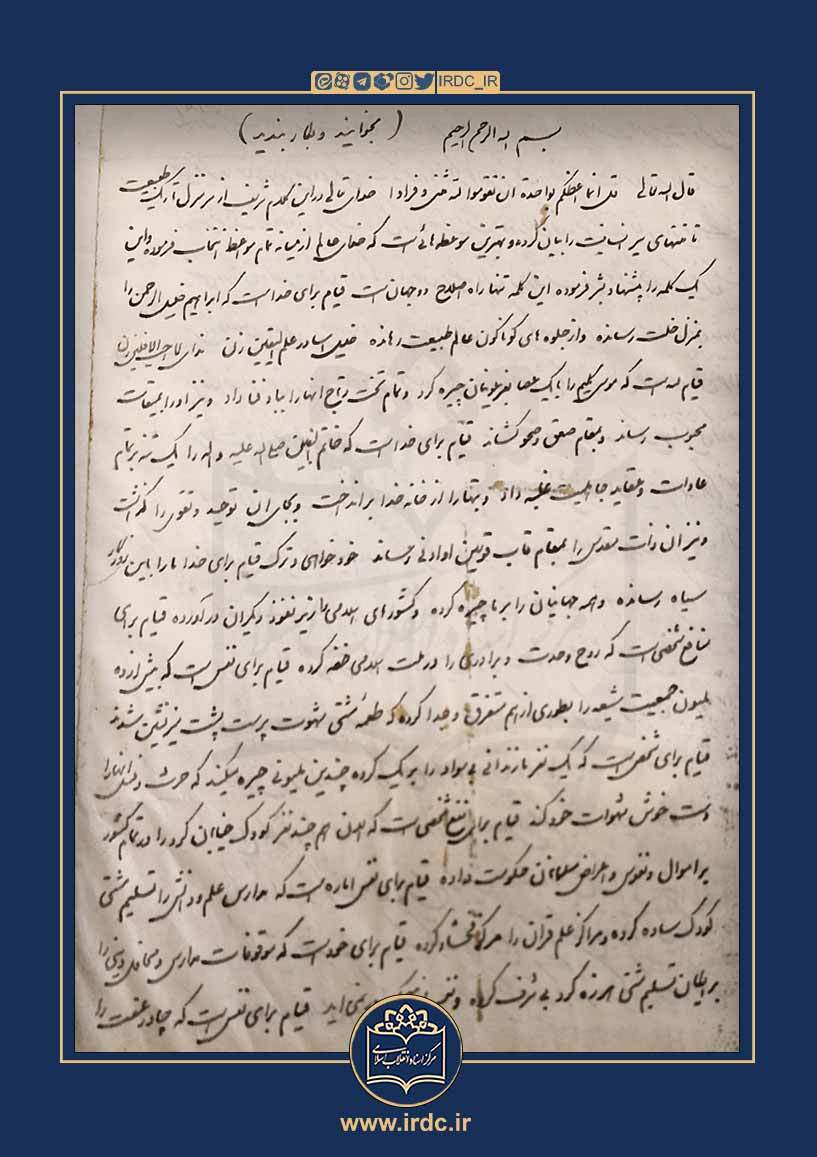 IRDC_IR
بسم الله الرحمن الرحیم (بخوانید و بکار ببندید)
قال الله تعالی قل انما اعظکم بواحدة ان تقوموا لله مثنی و فرادا خدای تعالی در این کلام شریف از سر منزل تاریک طبیعت
تا منتهای سیر انسانیت را بیان کرده و بهترین موعظه هائی است که خدای عالم از میانه تمام مواعظ انتخاب فرموده و این
یک کلمه را پیشنهاد بشر فرموده این کلمه تنها راه اصلاح دو جهان است قیام برای خداست که ابراهیم خلیل الرحمن را
بمنزل خلت رسانده و از جلوه های گوناگون عالم طبیعت رهانده خلیل آسا در علم الیقین زن ندای لا احب الافلین زن
قیام لله است که موسی کلیم را با یک عصا بفرعونیان چیره کرد و تمام تخت و تاج آنها را بباد فنا داد و نیز او را بمیقات
محبوب رساند و بمقام صعق و صحو کشاند قیام برای خداست که خاتم النبیین صلی الله علیه و اله را یک تنه بر تمام
عادات و عقاید جاهلیت غلبه داد و بتها را از خانه خدا برانداخت و بجای آن توحید و تقوی را گذاشت
و نیز آن ذات مقدس را بمقام قاب قوسین او ادنی رساند خودخواهی و ترک قیام برای خدا ما را باین روزگار
سیاه رسانده و همه جهانیان را بر ما چیره کرده و کشورهای اسلامی را زیر نفوذ دیگران درآورده قیام برای
منافع شخصی است که روح وحدت و برادری را در ملت اسلامی خفه کرده قیام برای نفس است که بیش از ده
ملیون جمعیت شیعه را بطوری از هم متفرق و جدا کرده که طعمه مشتی شهوت پرست پشت میز نشین شدند
قیام برای شخص است که یک نفر مازندرانی بی سواد را بر یک گروه چندین ملیونی چیره میکند که حرث و نسل آنها را
دست خوش شهوات خود کند قیام برای نفع شخصی است که الان هم چند نفر کودک خیابان گرد را در تمام کشور
بر اموال و نفوس و اعراض مسلمانان حکومت داده قیام برای نفس اماره است که مدارس علم و دانش را تسلیم مشتی
کودک ساده کرده و مراکز علم قرآن را مرکز فحشاء کرده قیام برای خود است که موقوفات مدارس و محافل دینی را
برایگان تسلیم مشتی هرزه گرد بی شرف کرده و نفس از نمی آید قیام برای نفس است که چادر عفت را
مرکز اسناد انقلاب اسلامی
www.irdc.ir